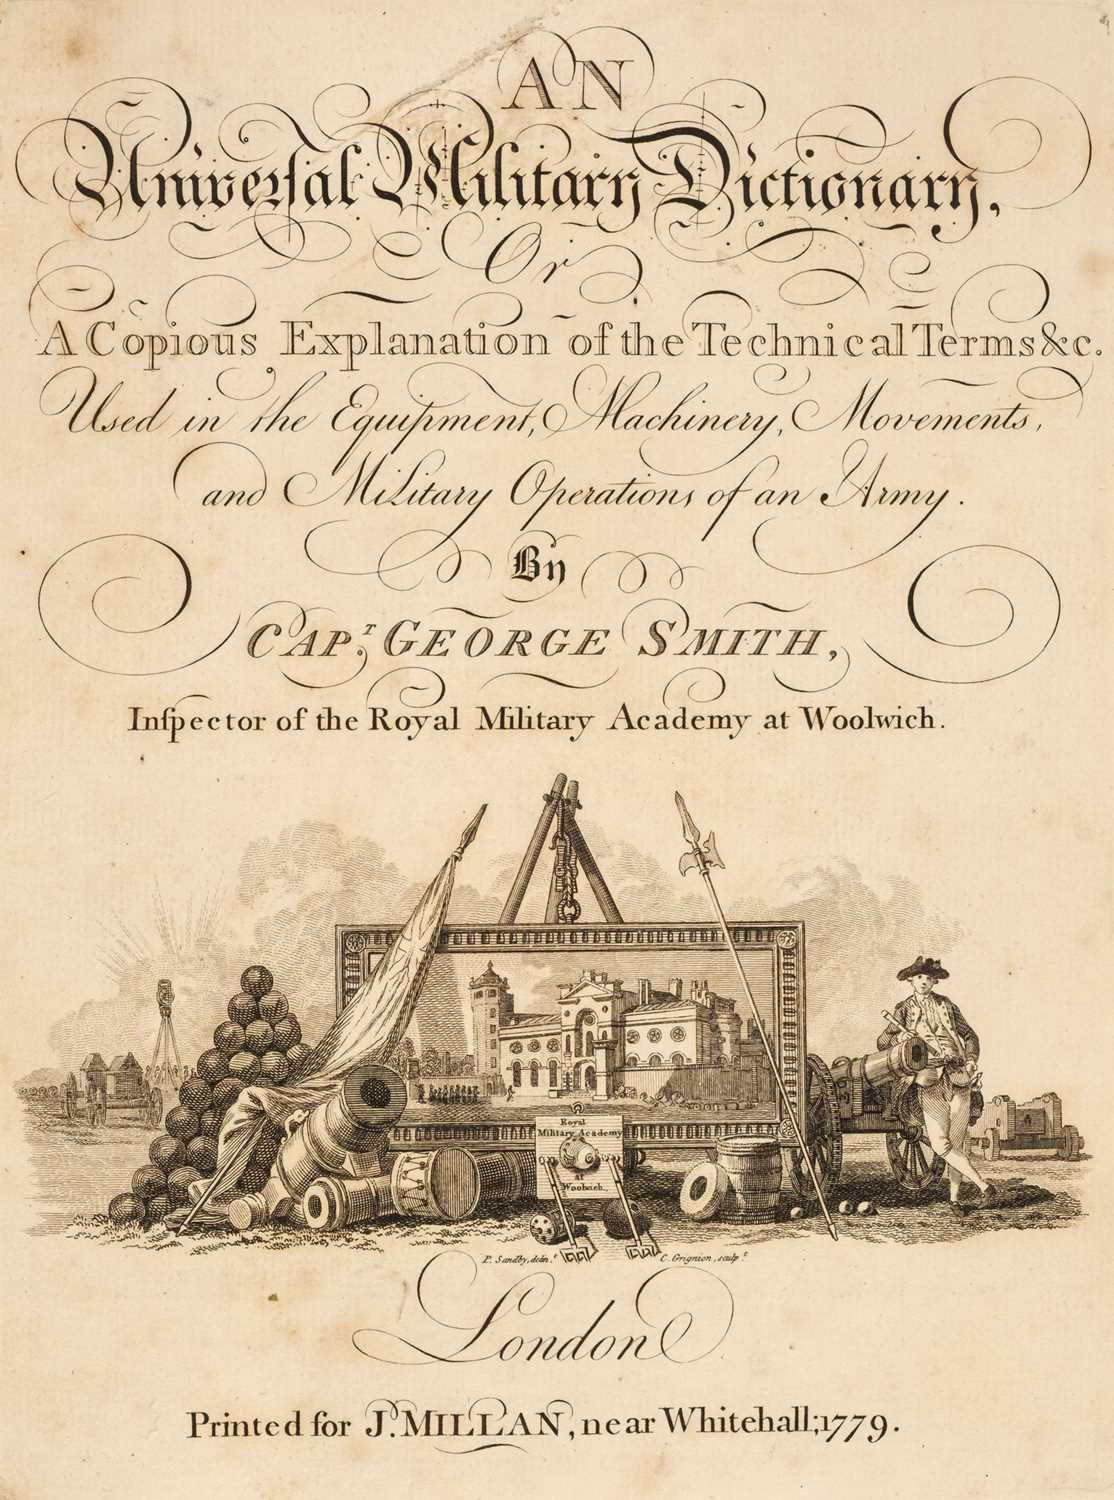 AN
Univerſal Military Dictionary,
Or
A Copious Explanation of the Technical Terms &c.
Used in the Equipment, Machinery, Movements,
and Military Operations of an Army.
By
CAPT. GEORGE SMITH,
Inſpector of the Royal Military Academy at Woolwich.
Royal
Military Academy
at
Woolwich.
P. Sandby, delin.t
C. Grignion, sculp.t
London
Printed for J. MILLAN, near Whitehall; 1779.